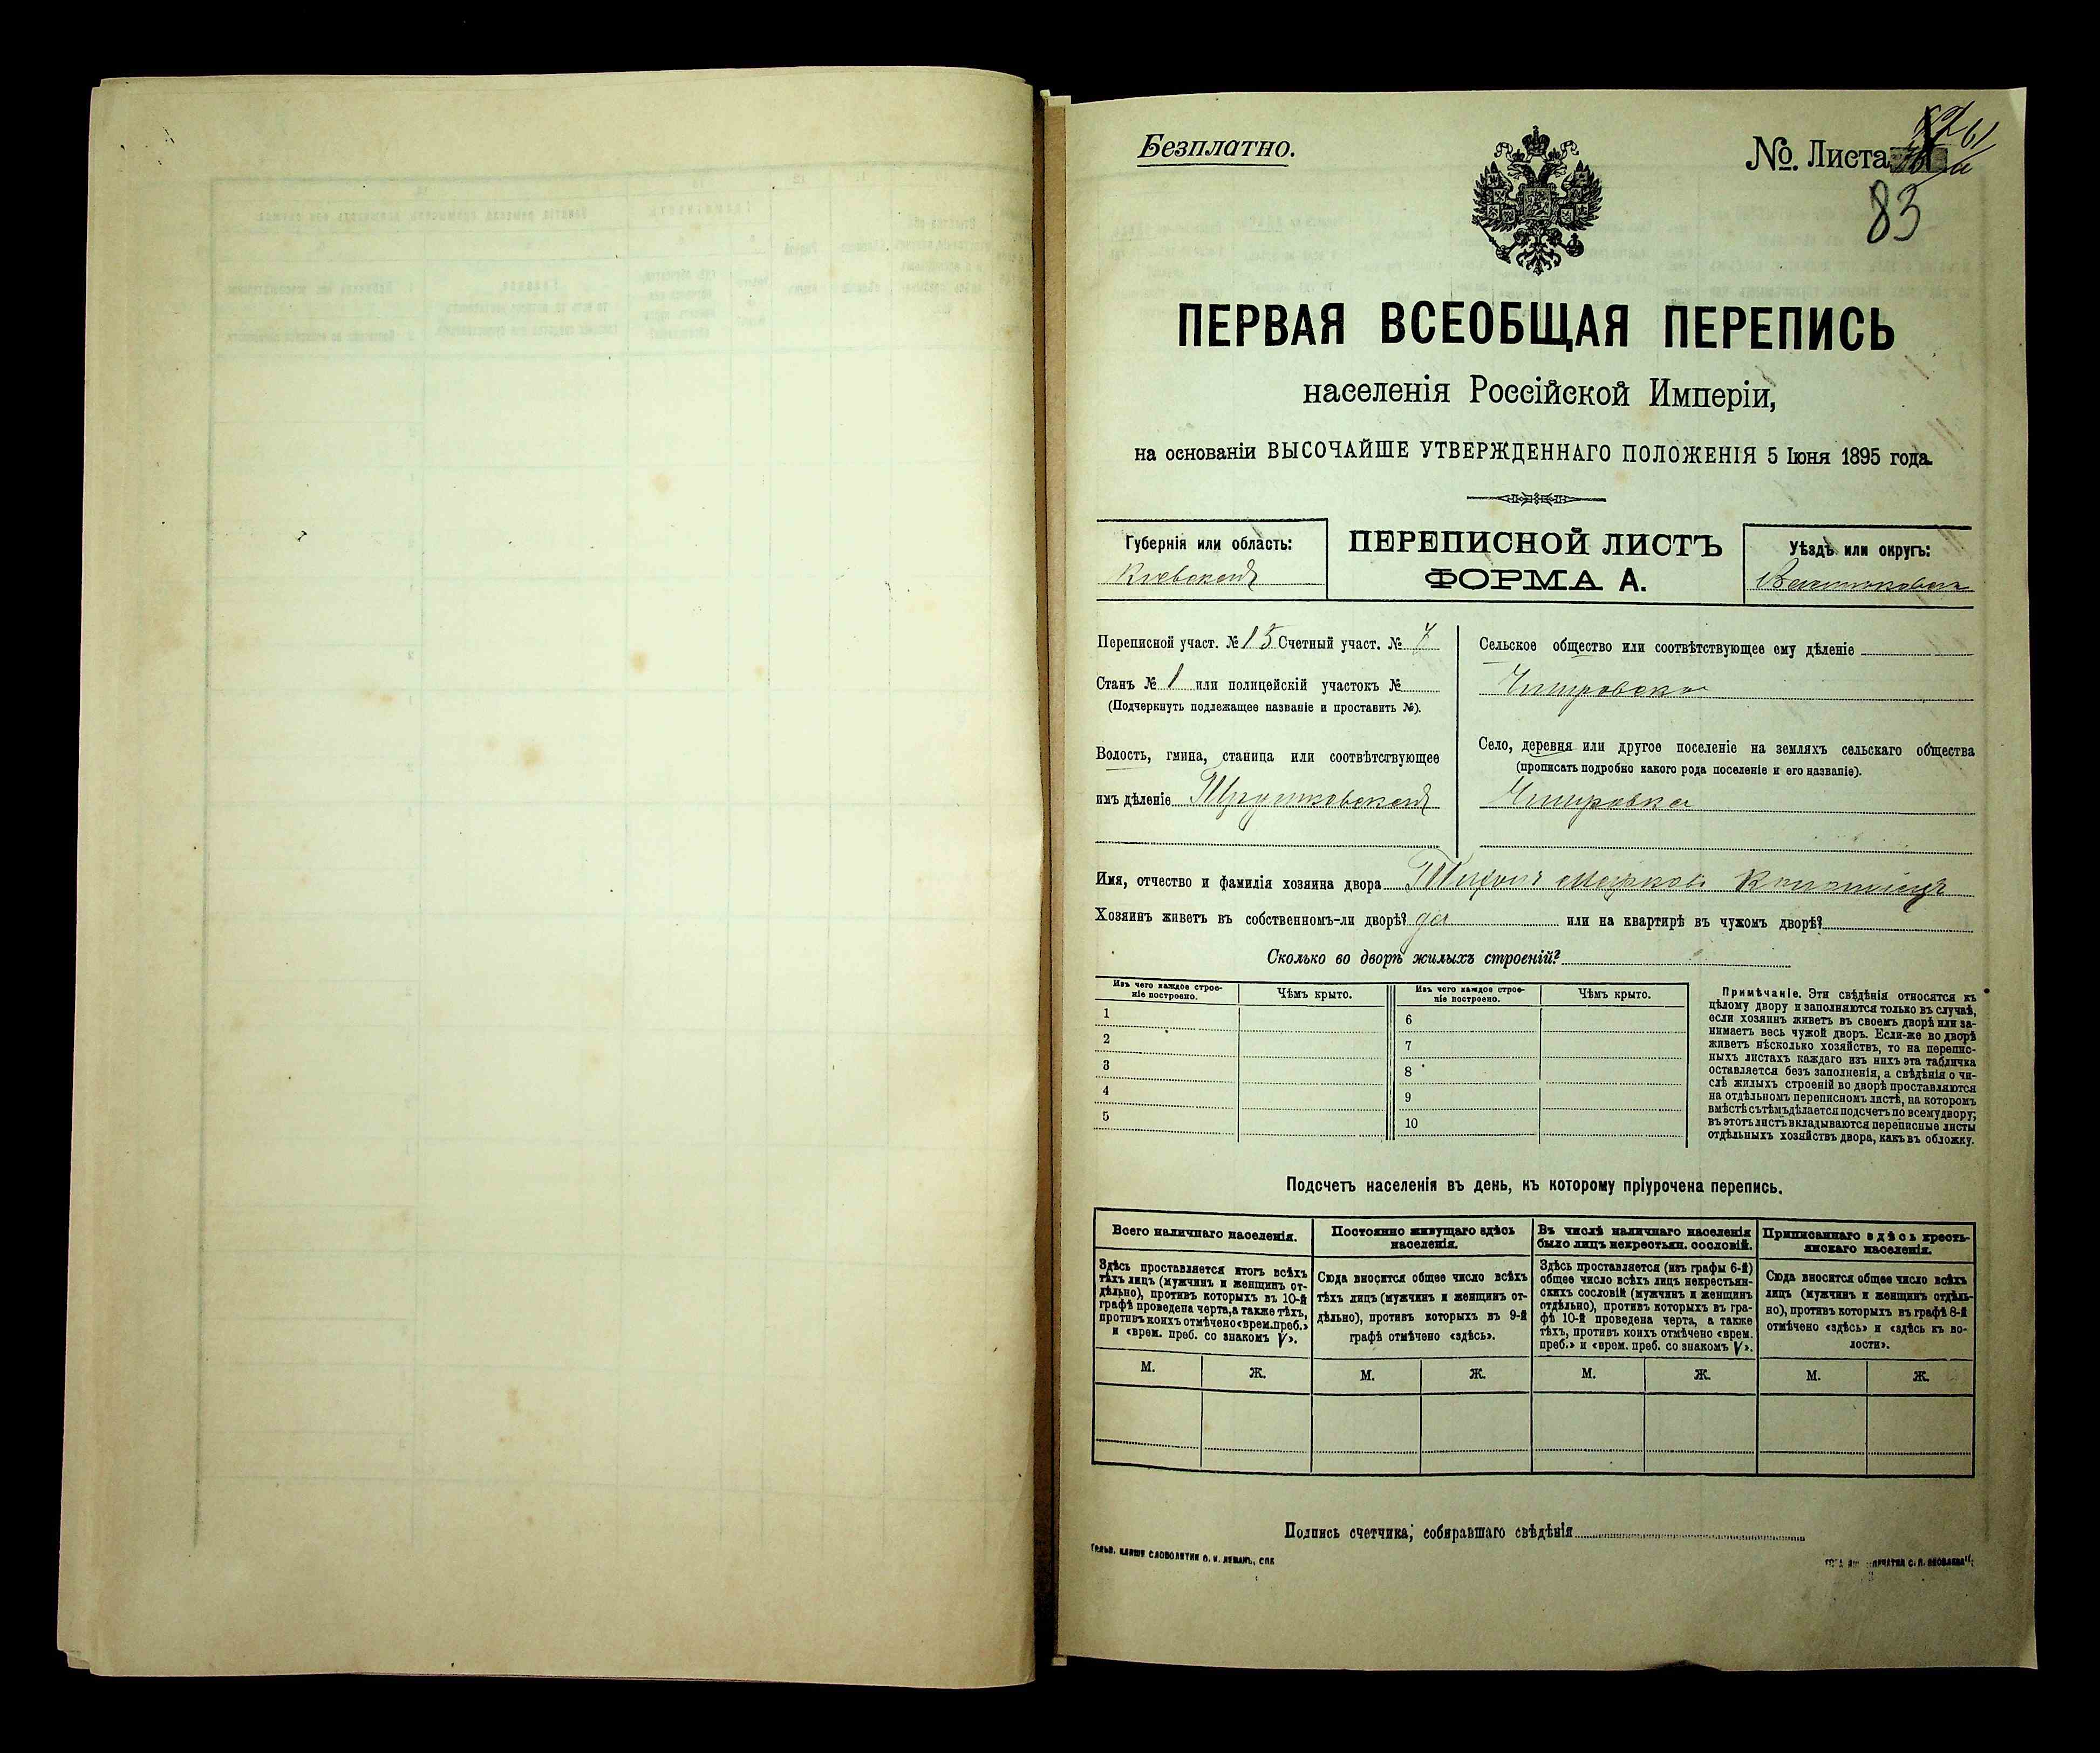 Безплатно.
№ Листа
83
ПЕРВАЯ ВСЕОБЩАЯ ПЕРЕПИСЬ
населенія Россійской Имперіи,
на основаніи ВЫСОЧАЙШЕ УТВЕРЖДЕННАГО ПОЛОЖЕНІЯ 5 Іюня 1895 года
Губернія или область:
Кіевская
ПЕРЕПИСНОЙ ЛИСТЪ
ФОРМА А.
Уѣздъ или округъ:
Переписной участ. № 15 Счетный участ. № 7
Станъ № 1 или полицейскій участокъ №
(Подчеркнуть подлежащее названіе и проставить №).
Волость, гмина, станица или соотвѣтствующее
имъ дѣленіе
Сельское общество или соотвѣтствующее ему дѣленіе
Село, деревня или другое поселеніе на земляхъ сельскаго общества
(прописать подробно какого рода поселеніе и его названіе).
Имя, отчество и фамилія хозяина двора Тихонъ Марковъ
Хозяинъ живетъ въ собственномъ-ли дворѣ? да или на квартирѣ въ чужомъ дворѣ?
Сколько во дворѣ жилыхъ строеній?
Изъ чего каждое строе-
ніе построено.
Чѣмъ крыто.
1
2
3
4
5
Изъ чего каждое строе-
ніе построено.
Чѣмъ крыто.
6
7
8
9
10
Примѣчаніе. Эти свѣдѣнія относятся къ
цѣлому двору и заполняются только въ случаѣ,
если хозяинъ живетъ въ своемъ дворѣ или за-
нимаетъ весь чужой дворъ. Если-же во дворѣ
живетъ нѣсколько хозяйствъ, то на перепис-
ныхъ листахъ каждаго изъ нихъ эта табличка
оставляется безъ заполненія, а свѣдѣнія о чи-
слѣ жилыхъ строеній во дворѣ проставляются
на отдѣльномъ переписномъ листѣ, на которомъ
вмѣстѣ съ тѣмъ дѣлается подсчетъ по всему двору;
въ этотъ листъ вкладываются переписные листы
отдѣльныхъ хозяйствъ двора, какъ въ обложку.
Подсчетъ населенія въ день, къ которому пріурочена перепись.
Всего наличнаго населенія.
Здѣсь проставляется итогъ всѣхъ
тѣхъ лицъ (мужчинъ и женщинъ от-
дѣльно), противъ которыхъ въ 10-й
графѣ проведена черта, а также тѣхъ,
противъ коихъ отмѣчено «врем. преб.»
и «врем. преб. со знакомъ V».
М.
Ж.
Постоянно живущаго здѣсь
населенія.
Сюда вносится общее число всѣхъ
тѣхъ лицъ (мужчинъ и женщинъ от-
дѣльно), противъ которыхъ въ 9-й
графѣ отмѣчено «здѣсь».
М.
Ж.
Въ числѣ наличнаго населенія
было лицъ некрестьян. сословій.
Здѣсь проставляется (изъ графы 6-й)
общее число всѣхъ лицъ некрестьян-
скихъ сословій (мужчинъ и женщинъ
отдѣльно), противъ которыхъ въ гра-
фѣ 10-й проведена черта, а также
тѣхъ, противъ коихъ отмѣчено «врем.
преб.» и «врем. преб. со знакомъ V».
М.
Ж.
Приписаннаго здѣсь кресть-
янскаго населенія.
Сюда вносится общее число всѣхъ
лицъ (мужчинъ и женщинъ отдѣль-
но), противъ которыхъ въ графѣ 8-й
отмѣчено «здѣсь» и «здѣсь къ во-
лости».
М.
Ж.
Подпись счетчика, собиравшаго свѣдѣнія